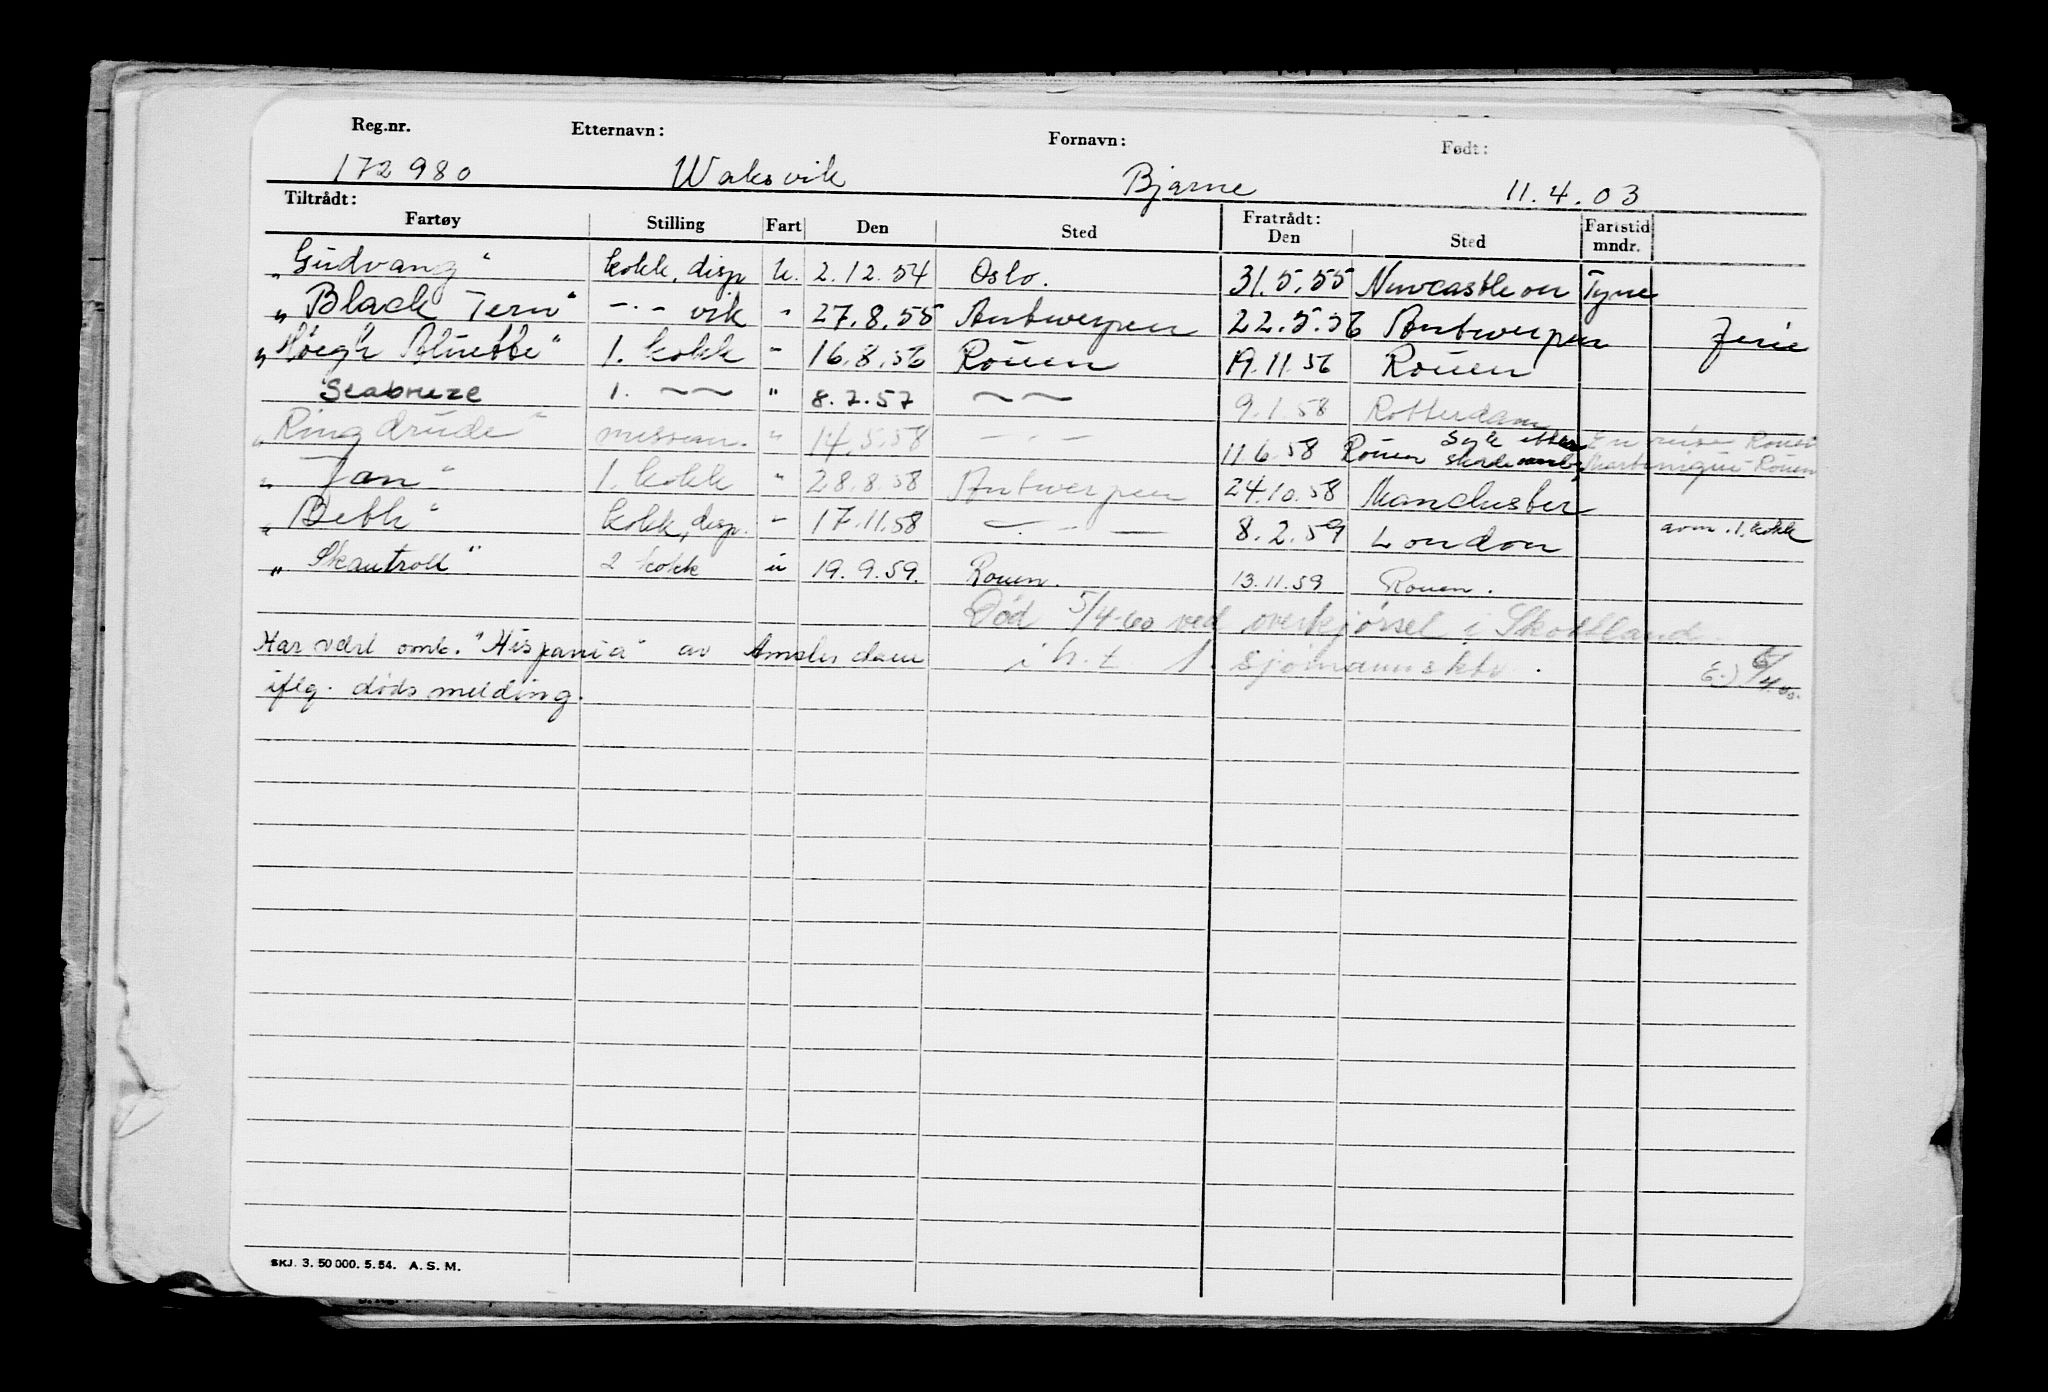 Reg.nr. Etternavn: Fornavn: Født:
172980 Waksvik Bjarne 11.4.03
Tiltrådt: Fratrådt:
Fartøy Stilling Fart Den Sted Den Sted Fartstid mndr.
"Gudvang" kokk, disp u. 2.12.54 Oslo. 31.5.55 Newcastle on Tyne
"Black Tern" -·- vik " 27.8.55 Antwerpen 22.5.56 Antwerpen Ferie
"Høegh Aluette" 1. kokk " 16.8.56 Rouen 19.11.56 Rouen
Seabreeze 1. ~~ " 8.7.57 ~~ 9.1.58 Rotterdam
"Ringdrude" messem. " 14.5.58 -·- 11.6.58 Rouen Syk etter En reise Rouen
Martinique-Rouen
"Jan" 1. kokk " 28.8.58 Antwerpen 24.10.58 Manchester
"Beth" kokk, disp. " 17.11.58 -·- 8.2.59 London avm. 1. kokk
"Skautroll" 2 kokk u 19.9.59. Rouen. 13.11.59 Rouen.
Død 5/4-60 ved overkjørsel i Skottland
Har vært omb. "Hispania" av Amsterdam i h.t. sjømannsktr.
iflg. dødsmelding.
SKJ. 3. 50 000. 5. 54. A. S. M.